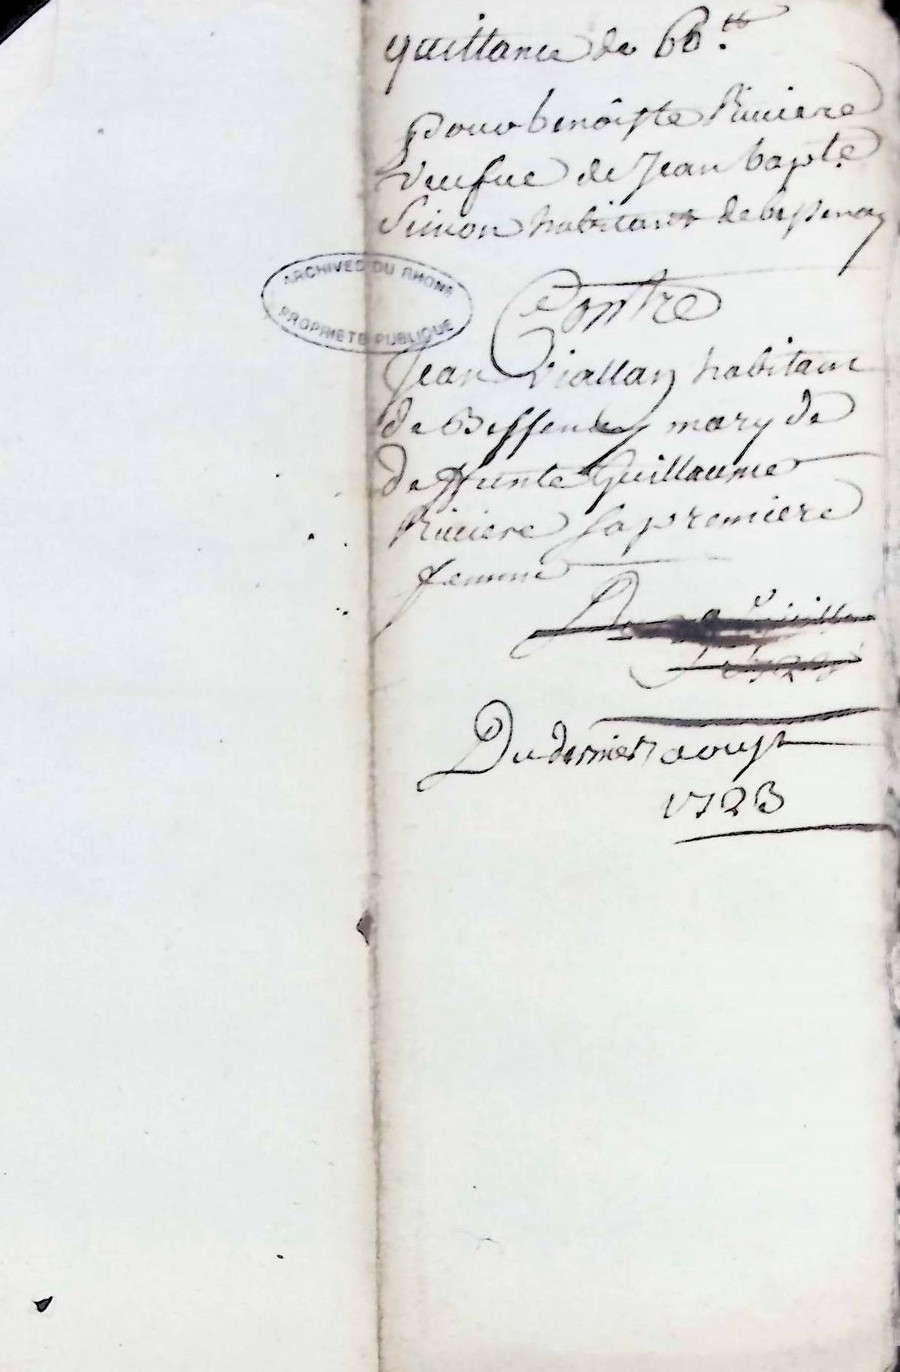 quittance de 66.tt
Pour benoiste Riuiere
Veufue de Jean bapte.
Simon habitant de bessenay
Contre
ARCHIVES DU RHONE
PROPRIETE PUBLIQUE
Jean Viallay habitant
de Bessenay mary de
deffunte Guillaume
Riuiere sa premiere
femme
Du dernier aoust
1723